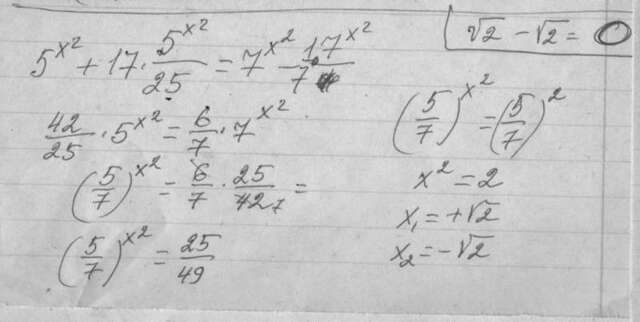 5^{x^2} + 17 · \frac{5^{x^2}}{25} = 7^{x^2} - \frac{17^{x^2}}{7}
\frac{42}{25} · 5^{x^2} = \frac{6}{7} · 7^{x^2}
(\frac{5}{7})^{x^2} = \frac{6}{7} · \frac{25}{42_7} =
(\frac{5}{7})^{x^2} = \frac{25}{49}
√2 - √2 = 0
(\frac{5}{7})^{x^2} = (\frac{5}{7})^2
x^2 = 2
x_1 = +√2
x_2 = -√2